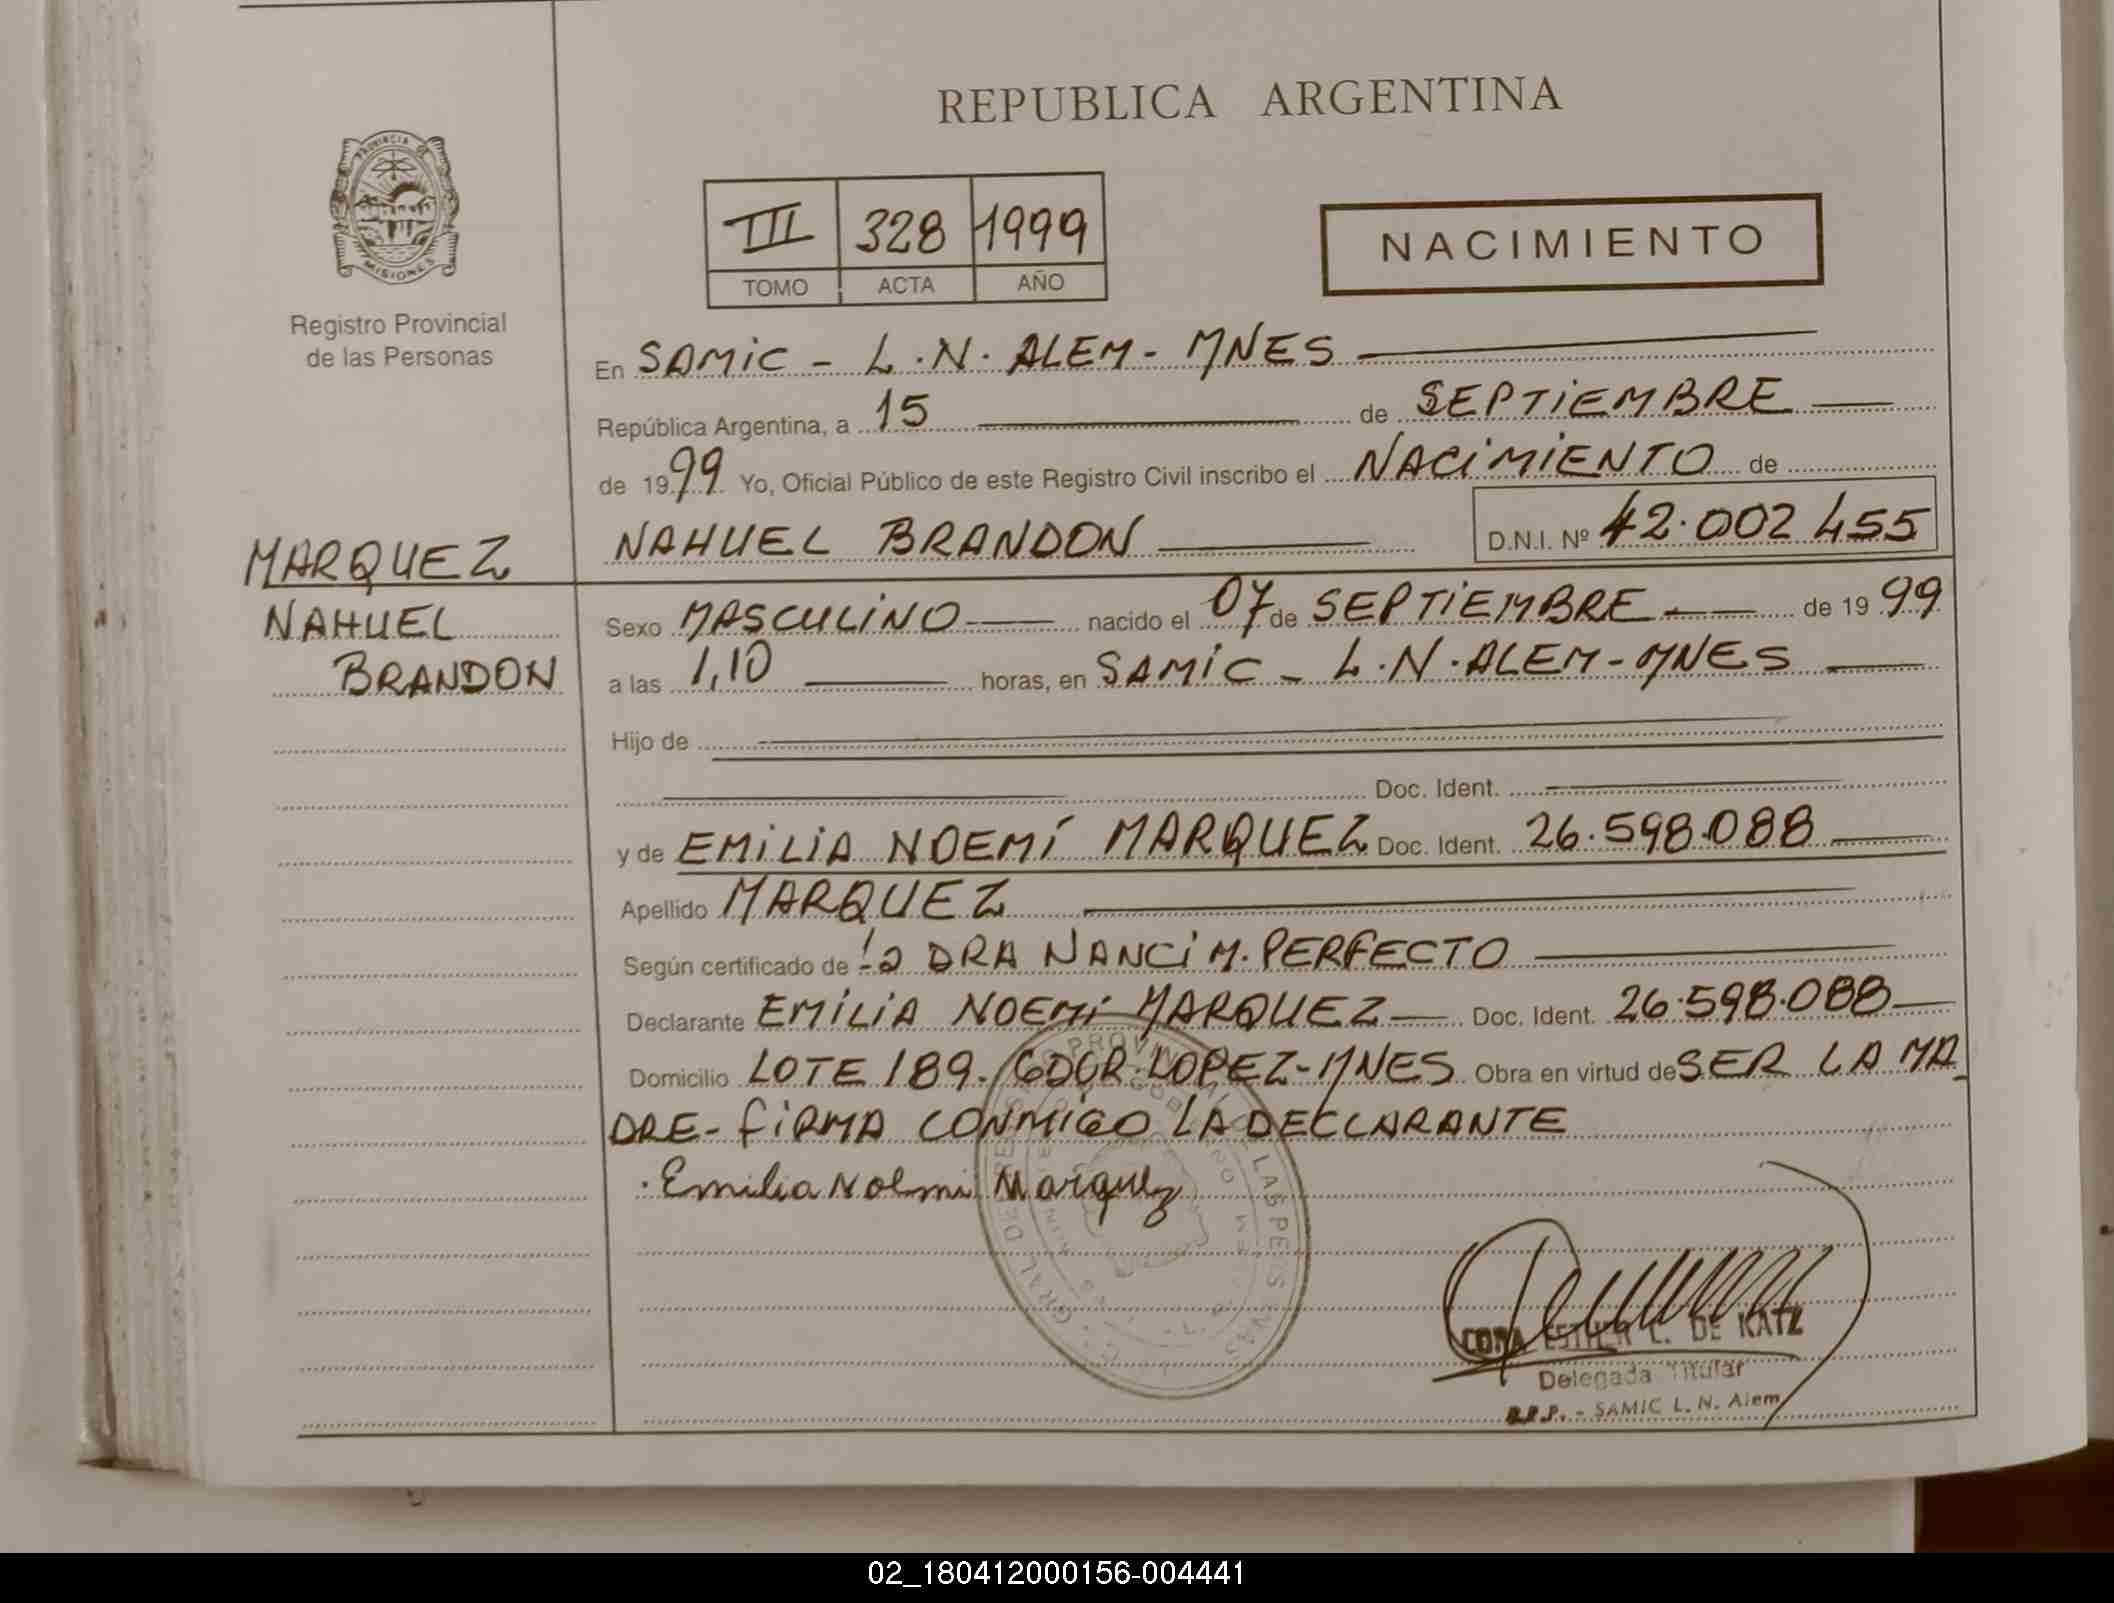 REPUBLICA ARGENTINA
PROVINCIA DE
MISIONES
Registro Provincial
de las Personas
III 328 1999
TOMO ACTA AÑO
NACIMIENTO
En SAMIC - L.N. ALEM - MNES
República Argentina, a 15 de SEPTIEMBRE
de 1999 Yo, Oficial Público de este Registro Civil inscribo el NACIMIENTO de
NAHUEL BRANDON D.N.I. Nº 42.002.455
MARQUEZ
NAHUEL
BRANDON
Sexo MASCULINO nacido el 07 de SEPTIEMBRE de 1999
a las 1,10 horas, en SAMIC - L.N. ALEM - MNES
Hijo de
Doc. Ident.
y de EMILIA NOEMÍ MARQUEZ Doc. Ident. 26.598.088
Apellido MARQUEZ
Según certificado de la DRA NANCI M. PERFECTO
Declarante EMILIA NOEMÍ MARQUEZ Doc. Ident. 26.598.088
Domicilio LOTE 189. GDOR. LOPEZ - MNES Obra en virtud de SER LA MA-
DRE - FIRMA CONMIGO LA DECLARANTE
Emilia Noemi Marquez
CORA ESTHER L. DE KATZ
Delegada Titular
R.P.P. - SAMIC L. N. Alem
02_180412000156-004441